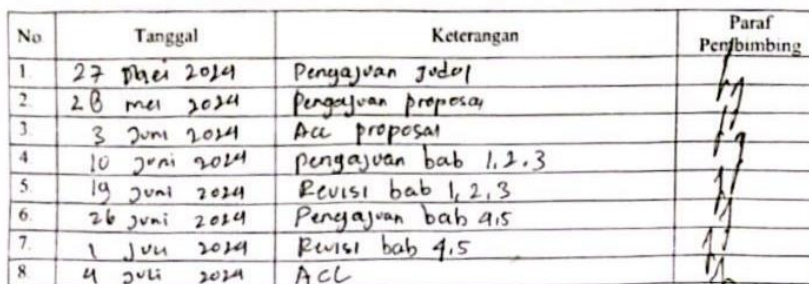 No Tanggal Keterangan Paraf Pembimbing
1. 27 Mei 2024 Pengajuan Judul
2. 28 mei 2024 Pengajuan proposal
3. 3 Juni 2024 Acc proposal
4. 10 Juni 2024 pengajuan bab 1,2,3
5. 19 Juni 2024 Revisi bab 1,2,3
6. 26 Juni 2024 Pengajuan bab 4,5
7. 1 Juli 2024 Revisi bab 4,5
8. 4 Juli 2024 ACC